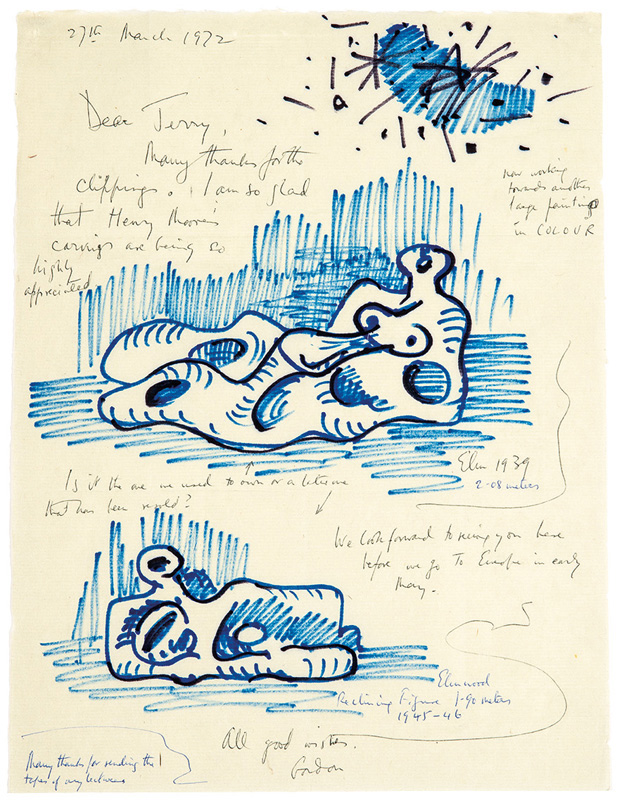 27th March 1972
Dear Jerry,
Many thanks for the
clippings. I am so glad
that Henry Moore's
carvings are being so
highly
appreciated
now working
towards another
large painting
in COLOUR
Elm 1939
2.08 meters
Is it the one we used to own or a later one
that has been resold?
We look forward to seeing you here
before we go to Europe in early
May.
Elmwood
Reclining Figure 1.90 meters
1945-46
All good wishes.
Gordon
Many thanks for sending the
tapes of my lectures